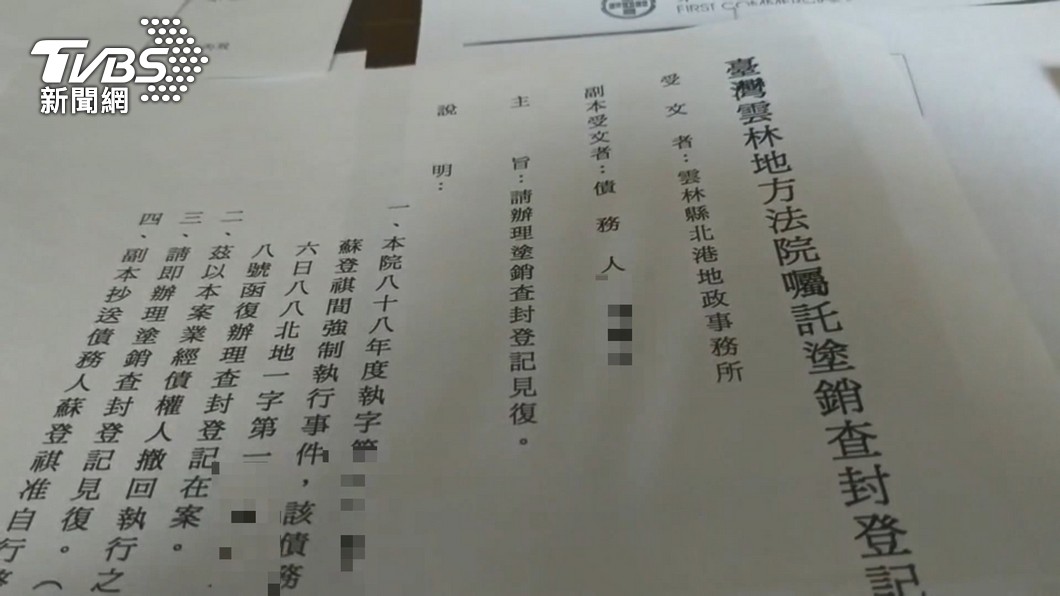 TVBS
新聞網
FIRST COMMERCIAL
臺灣雲林地方法院囑託塗銷查封登記
受文者：雲林縣北港地政事務所
副本受文者：債務人
主旨：請辦理塗銷查封登記見復。
說明：
一、本院八十八年度執字第
蘇登祺間強制執行事件，該債務
六日八八北地一字第一
八號函復辦理查封登記在案。
二、茲以本案業經債權人撤回執行之
三、請即辦理塗銷查封登記見復。（
四、副本抄送債務人蘇登祺准自行